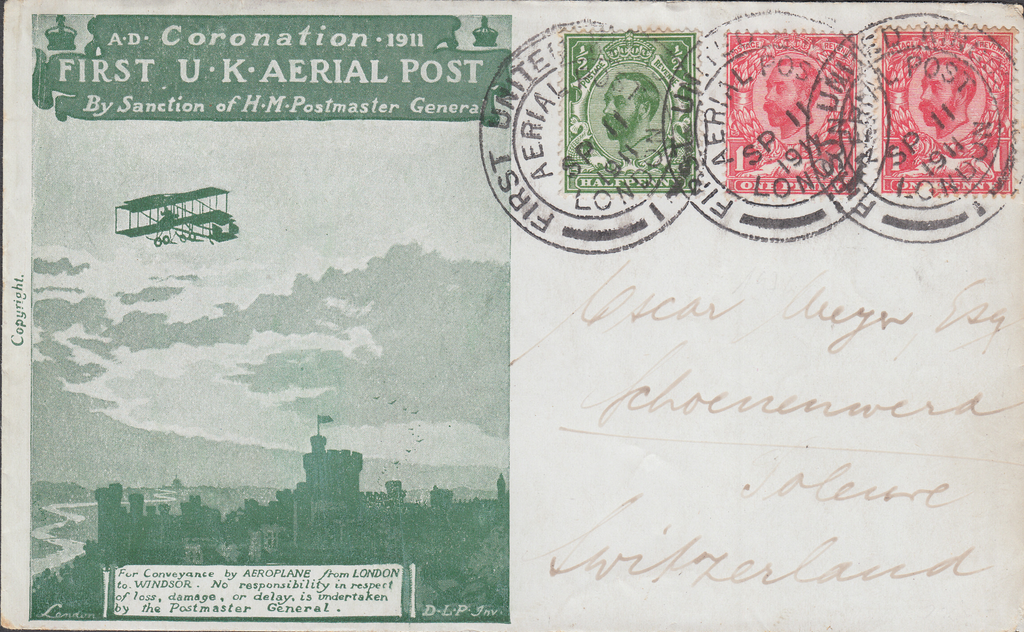 A·D· Coronation · 1911
FIRST U·K·AERIAL POST
By Sanction of H·M·Postmaster Genera
Copyright.
For Conveyance by AEROPLANE from LONDON
to WINDSOR. No responsibility in respect
of loss, damage, or delay, is undertaken
by the Postmaster General.
London
D-L-P-Inv
FIRST UNITE
AERIAL
SP 11
1911
LONDON
1/2
1/2
HA
FIRST UNITED
AERIAL POST
SP 11
1911
LONDON
AERIAL POST
SP 11
1911
LONDON
Oscar Meyer Esq
Schoenenwerd
Switzerland